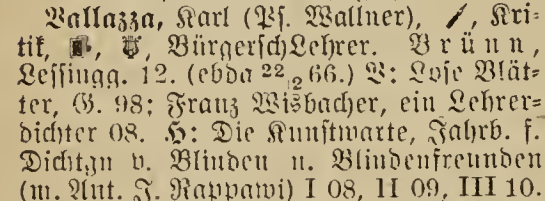 Vallazza, Karl (Ps. Wallner), Kri-
tik, Bürgersch Lehrer. Brünn,
Lessingg. 12. (ebda 22/2 66.) V: Lose Blät-
ter, G. 98; Franz Wisbacher, ein Lehrer-
dichter 08. H: Die Kunstwarte, Jahrb. f.
Dichtgn v. Blinden u. Blindenfreunden
(m. Ant. J. Rappawi) I 08, II 09, III 10.